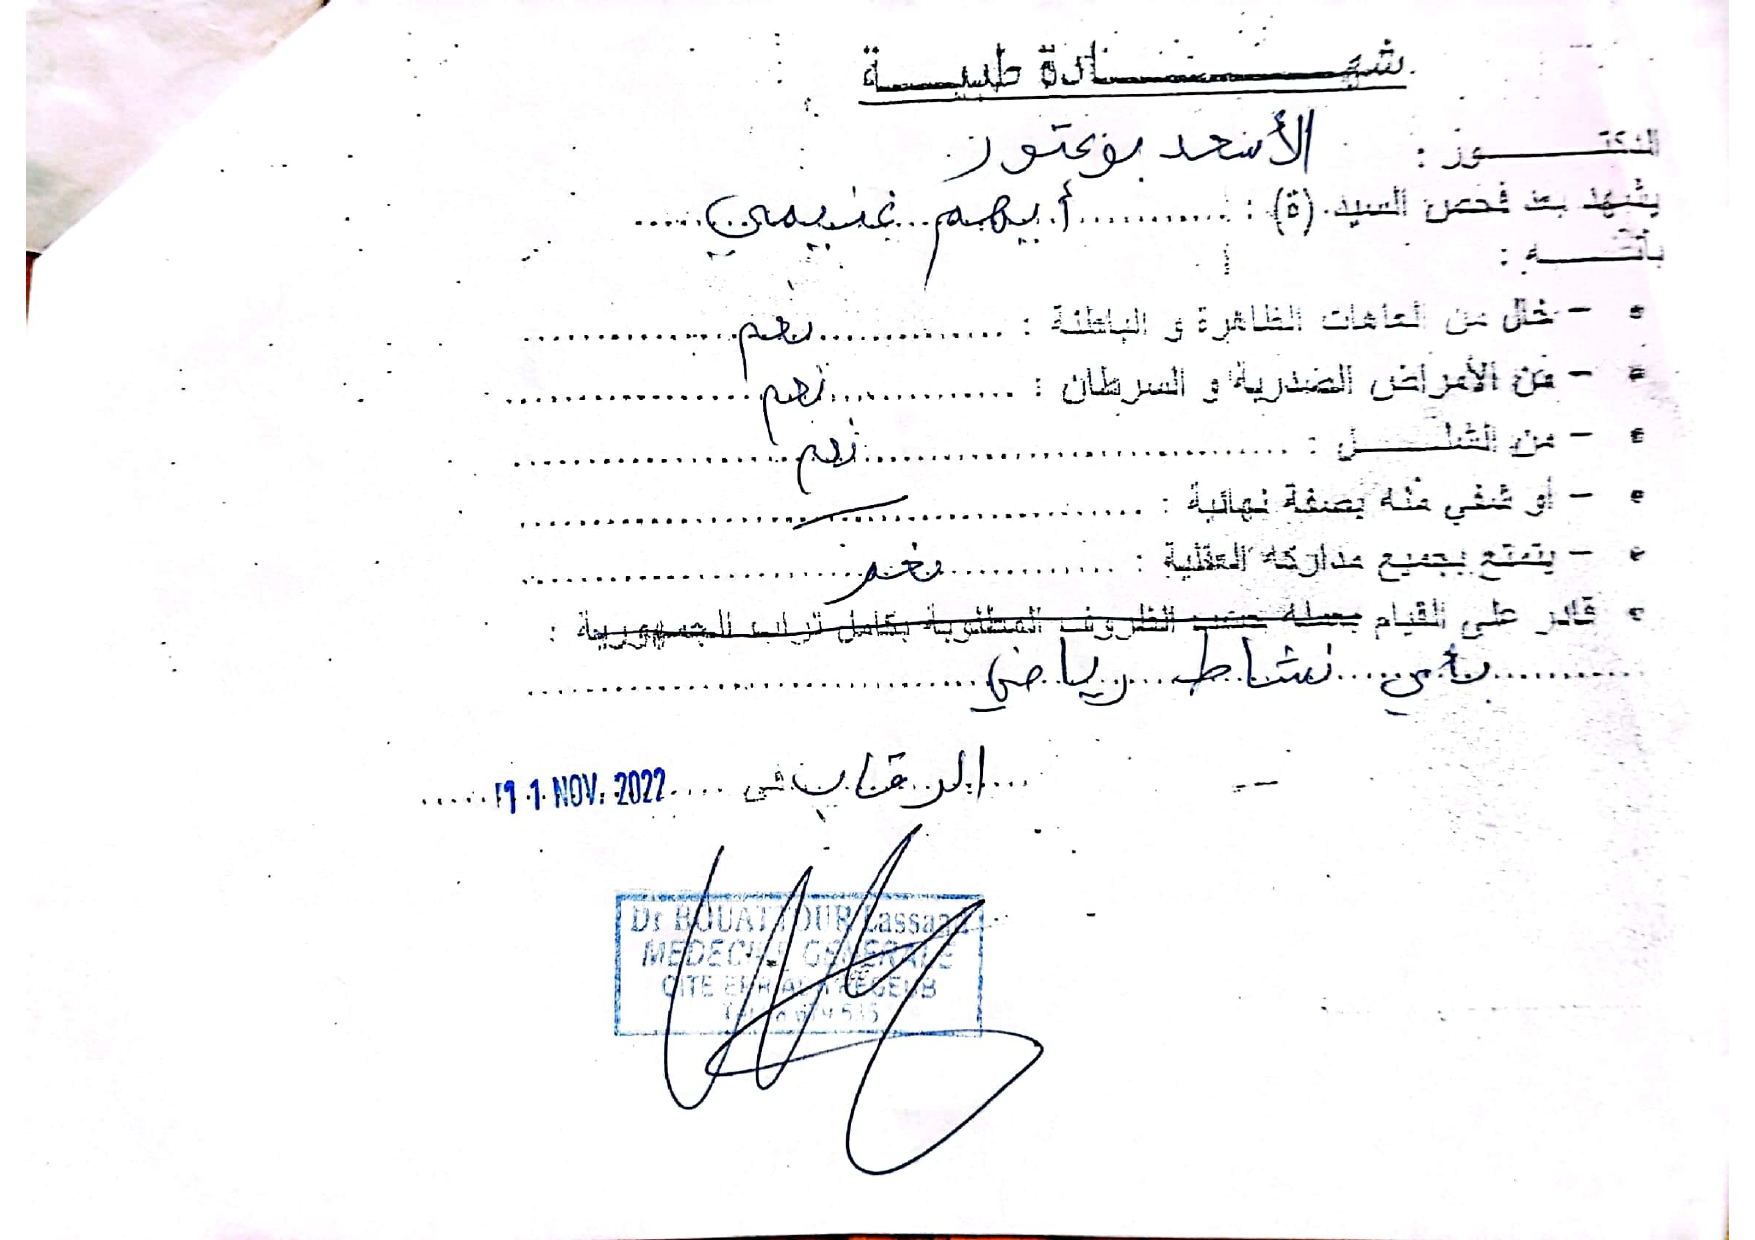 شهــــادة طبيــــة
الدكتــــور : الأسعد بوعتور
يشهد بعد فحص السيد (ة) : ........... أيهم غنيمي .....
بأنــــه :
• - خال من العاهات الظاهرة و الباطنة : ........... نعم ...........
• - من الأمراض الصدرية و السرطان : ........... نعم ...........
• - من الشلــــل : ........... نعم ...........
• - أو شفي منه بصفة نهائية : ........... — ...........
• - يتمتع بجميع مداركه العقلية : ........... نعم ...........
• قادر على القيام بعمله حسب الظروف المطلوبة بكامل تراب الجمهورية :
........... بأي نشاط رياضي ...........
... الرقاب في ..... 11 NOV. 2022 .....
Dr BOUATTOUR Lassaad
MEDECINE GENERALE
CITE ERRIADH REGEUB